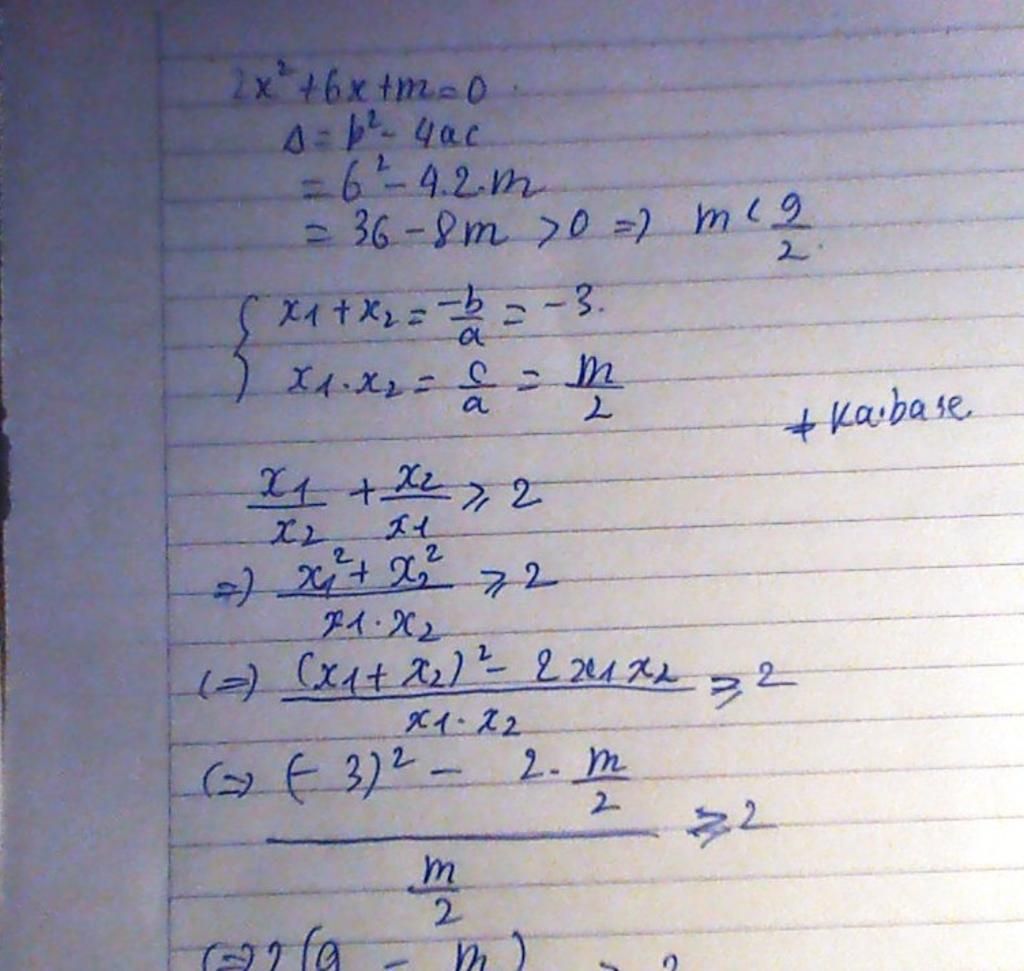 2x² + 6x + m = 0
Δ = b² - 4ac
= 6² - 4.2.m
= 36 - 8m > 0 => m < 9/2.
{ x1 + x2 = -b/a = -3.
x1 . x2 = c/a = m/2
+ Kaibase
x1/x2 + x2/x1 ⩾ 2
=) (x1² + x2²)/(x1 . x2) ⩾ 2
(=) ((x1 + x2)² - 2x1x2)/(x1 . x2) ⩾ 2
(=) ((-3)² - 2. m/2)/(m/2) ⩾ 2